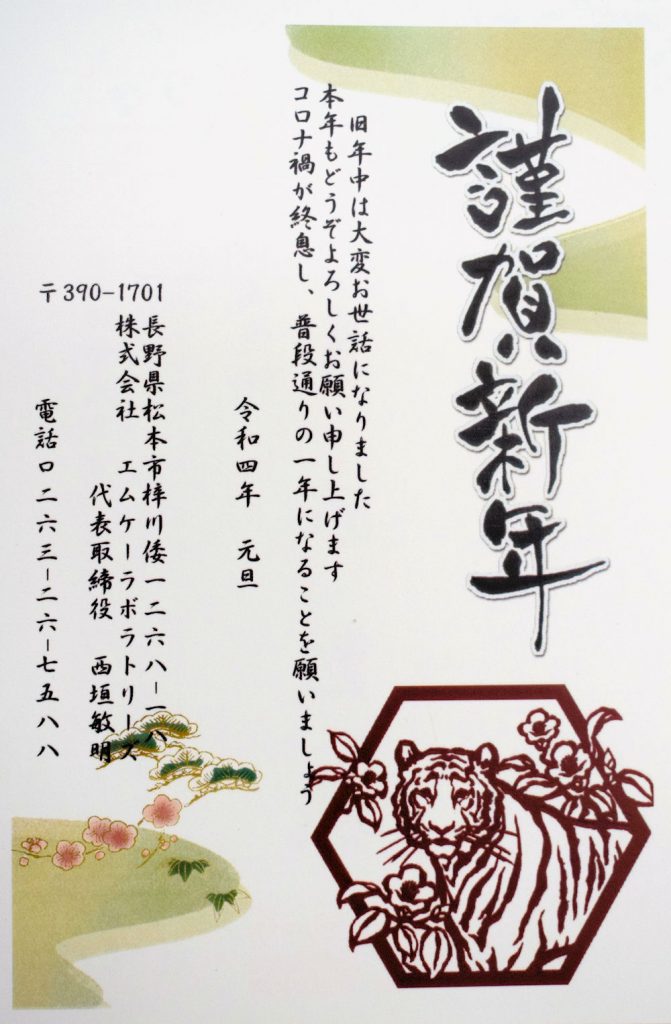 謹賀新年
旧年中は大変お世話になりました
本年もどうぞよろしくお願い申し上げます
コロナ禍が終息し、普段通りの一年になることを願いましょう
令和四年 元旦
〒390-1701
長野県松本市梓川倭一二六八ー一八
株式会社 エムケーラボラトリーズ
代表取締役 西垣敏明
電話〇二六三ー二六ー七五八八